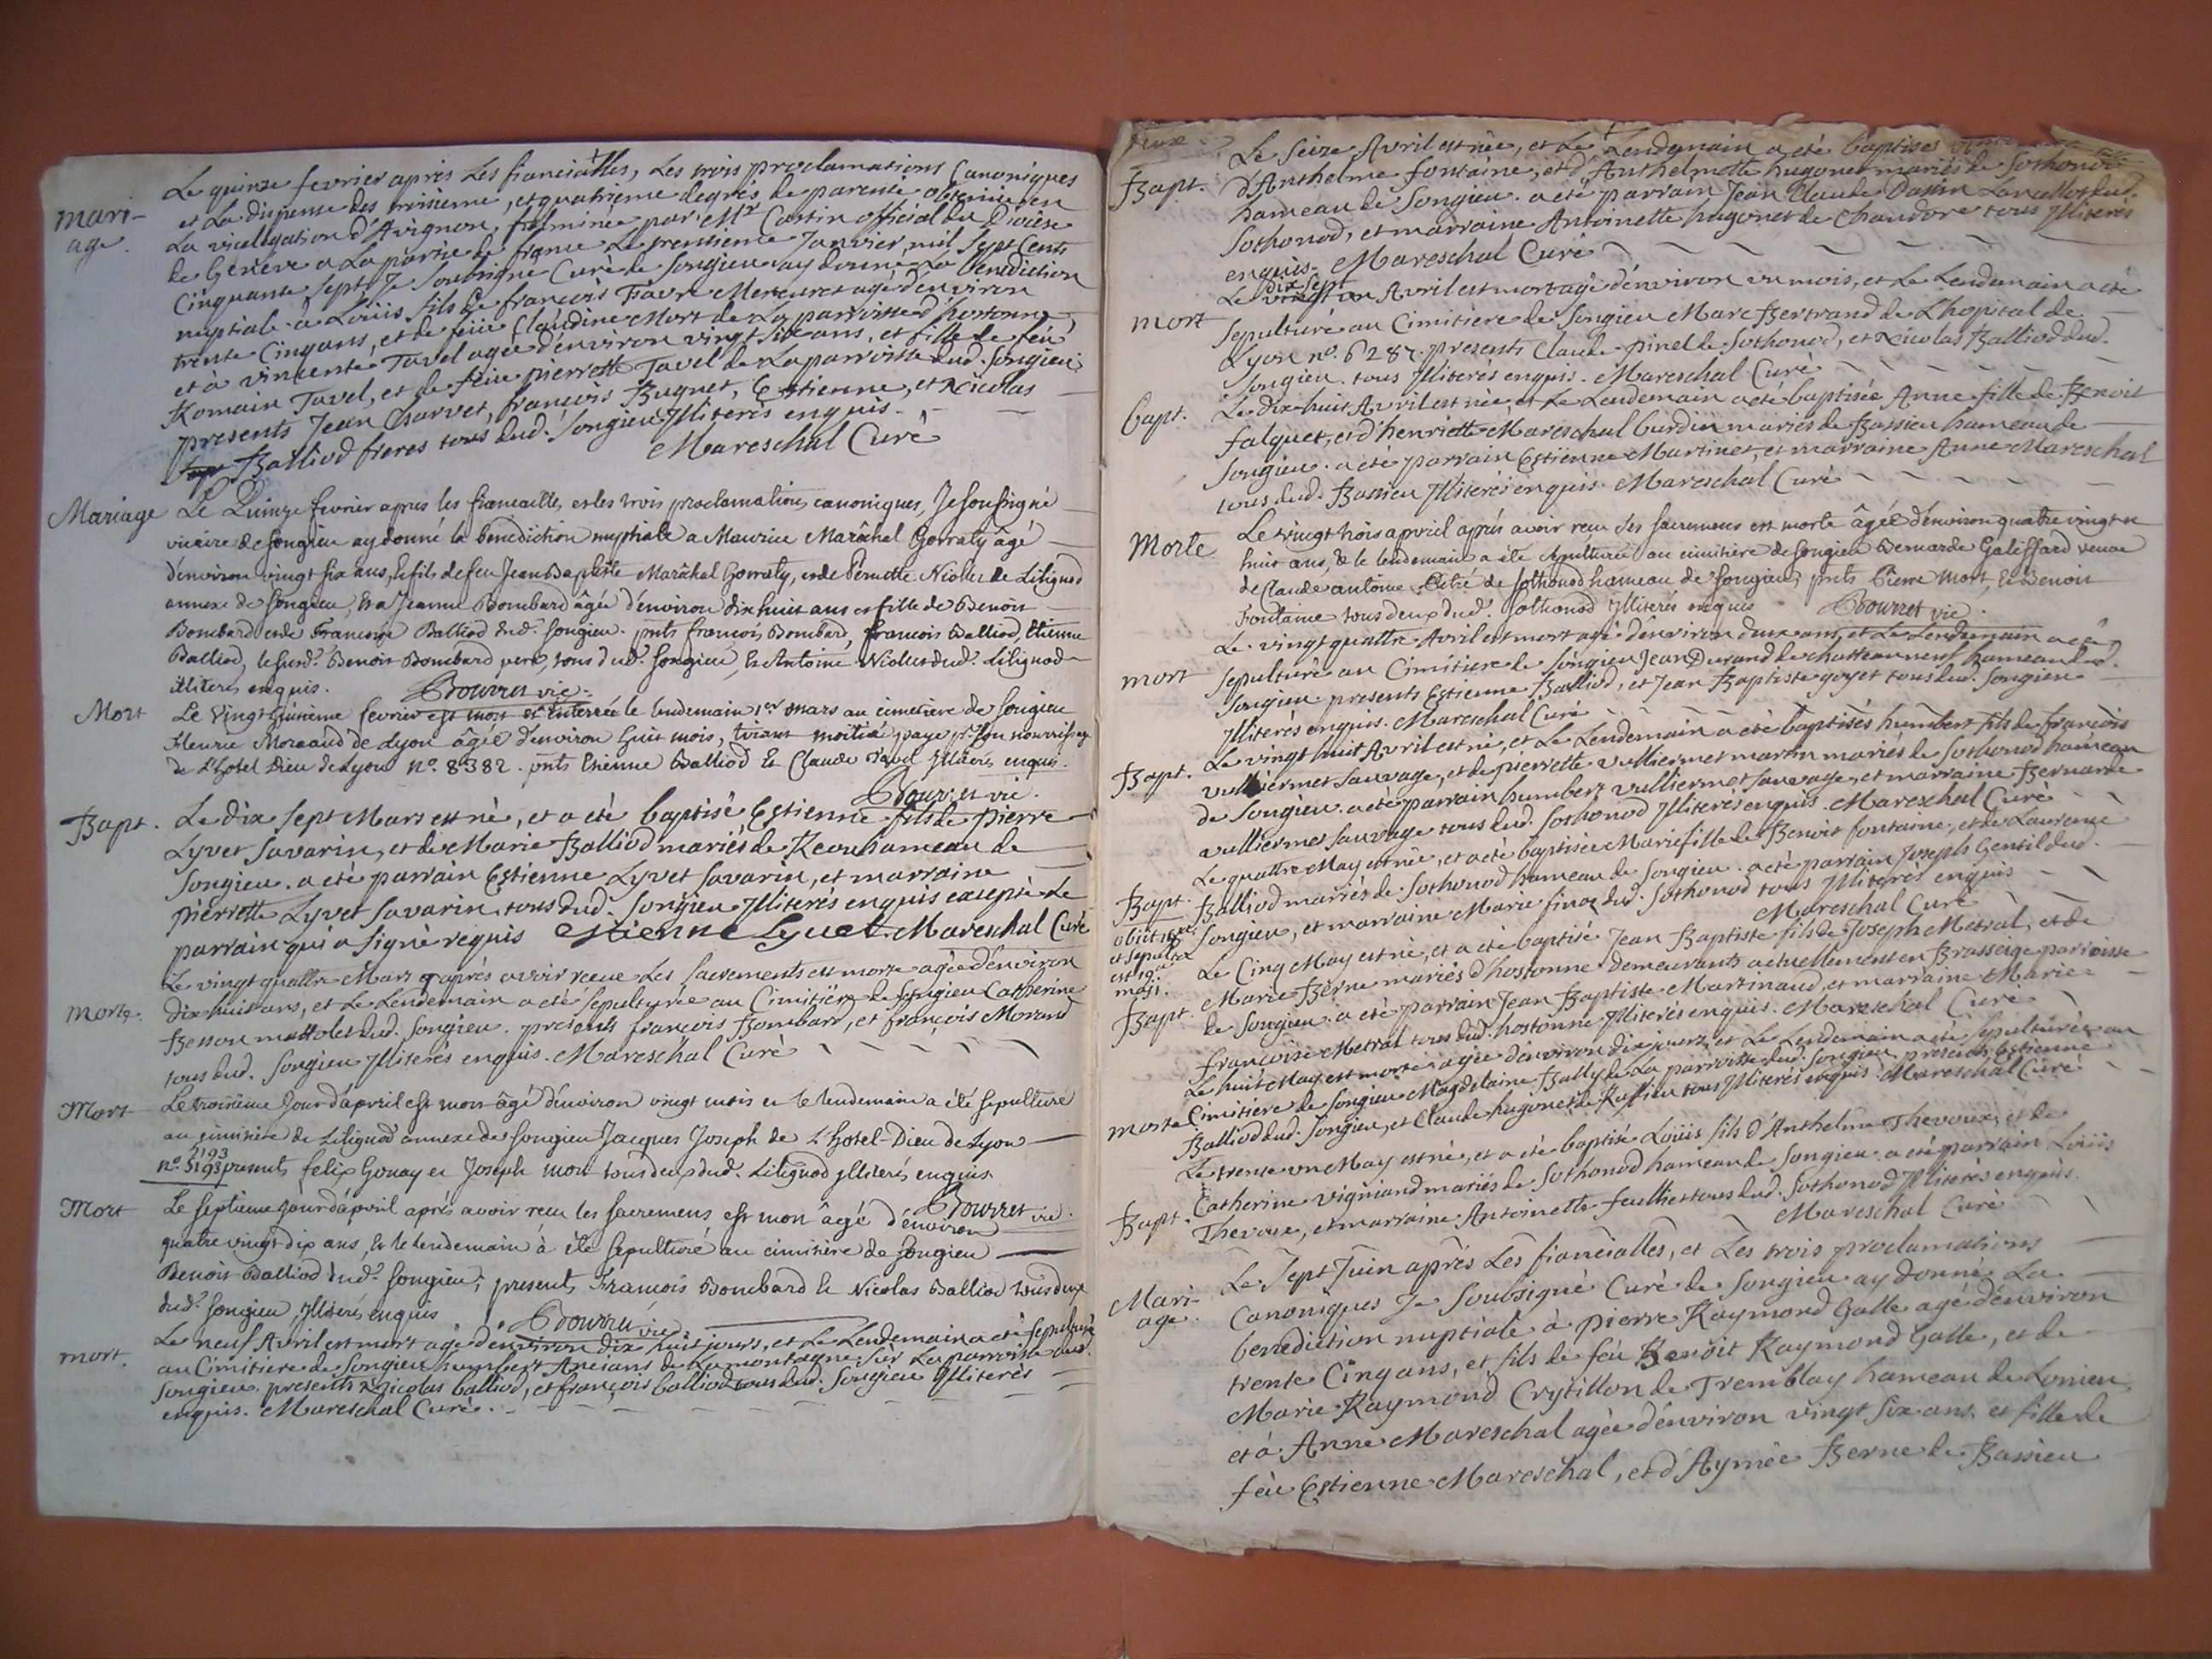 Mari-
age.
Le quinze fevrier après Les fianciàlles, Les trois proclamations Canoniques
et La dispense des troisieme, et quatrieme degrés de parenté obtenüe en
La vicelegation d'Avignon, fulminée par Mr Costin official du Diocèse
de Genève a La partie de france Le trentieme Janvier mil sept Cents
Cinquante sept, Je Soubsigné Curé de Songieu ay donné La benediction
nuptiale à Loüis fils de françois Favre Mercuret agé d'environ
trente Cinq ans, et de feüe Claudine Mort de La parroisse d'hostonne,
et à vincente Tavel agée d'environ vingt six ans, et fille de feu
Romain Tavel, et de feüe pierrette Tavel de La parroisse dud. Songieu;
presents Jean Charvet, françois Bugnet, Estienne, et Nicolas
Balliod freres tous dud. Songieu Illiterés enquis.
Mareschal Curé
Mariage Le Quinze fevrier apres les fiancailles, et les trois proclamations canoniques, Je soussigné
vicaire de Songieu ay donné la benediction nuptiale a Maurice Maréchal Gorraty âgé
d'environ vingt six ans, & fils de feu Jean Baptiste Maréchal Gorraty, et de Pernette Niollet de Lilignod
annexe de Songieu, & a Jeanne Bombard âgée d'environ dix huit ans et fille de Benoit
Bombard et de Francoise Balliod dud. Songieu. pnts francois Bombard, francois Balliod, Etienne
Balliod, le susd. Benoit Bombard pere, tous dud. Songieu, & Antoine Niollet dud. Lilignod
illiterés enquis. Bourret vic.
Mort Le vingt huitieme fevrier est mort et enterrée le lendemain 1er mars au cimetiere de Songieu
Fleurie Moreaud de Lyon âgée d'environ huit mois, tirant moitié paye pr. son nourrissage
de L'hotel Dieu de Lyon no. 8382. pnts Etienne Balliod & Claude Tavel Illiterés enquis.
Bourret vic.
Bapt. Le dix sept Mars est né, et a été baptisé Estienne fils de pierre
Lyvet Savarin, et de Marie Balliod mariés de Reou hameau de
Songieu. a été parrain Estienne Lyvet Savarin, et marraine
pierrette Lyvet Savarin tous dud. Songieu Illiterés enquis excepté Le
parrain qui a signé requis Estienne Lyvet Mareschal Curé
Le vingt quattre Mars après avoir receue Les Sacrements est morte agée d'environ
Morte. dix huit ans, et Le Lendemain a été sepulturée au Cimitiere de Songieu Catherine
Besson mottolet dud. Songieu. presents françois Bombard, et françois Morand
tous dud. Songieu Illiterés enquis. Mareschal Curé
Mort Le troisieme Jour d'apvril est mort âgé d'environ vingt mois et le lendemain a été sepulturé
au cimitiere de Lilignod annexe de Songieu Jacques Joseph de L'hotel-Dieu de Lyon
no. 5193 presents felix Gonay et Joseph mort tous deux dud. Lilignod Illiterés enquis.
Bourret vic.
Mort Le septieme jour d'apvril après avoir recu les sacremens est mort âgé d'environ
quatre vingt dix ans, & le lendemain à été sepulturé au cimitiere de Songieu
Benoit Balliod dud. Songieu; presents Francois Bombard & Nicolas Balliod tous deux
dud. Songieu, Illiterés enquis Bourret vic.
mort. Le neuf Avril est mort agé d'environ dix huit jours, et Le Lendemain a été sepulturé
au Cimitiere de Songieu humbert Ancians de La montagne sûr La parroisse dud.
Songieu. presents Nicolas balliod, et françois balliod tous dud. Songieu Illiterés
enquis. Mareschal Curé.
Le seize Avril est née, et Le Lendemain a été baptisée
Bapt. d'Anthelme fontaine, et d'Anthelmette hugonet mariés de Sothonod
hameau de Songieu. a été parrain Jean Claude Passin Lancellot dud.
Sothonod, et marraine Antoinette hugonet de Chandore tous Illiterés
enquis. Mareschal Curé
dix sept
Le Avril est mort agé d'environ un mois, et Le Lendemain a été
mort sepulturé au Cimitiere de Songieu Marc Bertrand de L'hopital de
Lyon no. 6287. presents Claude pinel de Sothonod, et Nicolas Balliod dud.
Songieu. tous Illiterés enquis. Mareschal Curé
bapt. Le dix huit Avril est née, et Le Lendemain a été baptisée Anne fille de Benoit
falquet, et d'henriette Mareschal burdin mariés de Bassieu hameau de
Songieu. a été parrain Estienne Martinet, et marraine Anne Mareschal
tous dud. Bassieu Illiterés enquis. Mareschal Curé
Morte Le vingt trois apvril après avoir recu ses sacremens est morte âgée d'environ quatre vingt et
huit ans, & le lendemain a été sepulturée au cimitière de Songieu Bernarde Galiffard veuve
de Claude antoine de Sothonod hameau de Songieu, pnts Pierre Mort, & Benoit
Fontaine tous deux dud. Sothonod Illiterés enquis Bourret vic.
Le vingt quattre Avril est mort agé d'environ deux ans, et Le Lendemain a été
mort sepulturé au Cimitiere de Songieu Jean Durand de chatteauneuf hameau dud.
Songieu. presents Estienne Balliod, et Jean Baptiste goyet tous dud. Songieu
Illiterés enquis. Mareschal Curé
Bapt. Le vingt huit Avril est né, et Le Lendemain a été baptisés humbert fils de françois
vulliermet sauvage, et de pierrette vulliermet martin mariés de Sothonod hameau
de Songieu. a été parrain humbert vulliermet sauvage, et marraine Bernarde
vulliermet sauvage tous dud. Sothonod Illiterés enquis. Mareschal Curé
Le quattre May est née, et a été baptisée Marie fille de Benoit fontaine, et de Laurence
Bapt. Balliod mariés de Sothonod hameau de Songieu. a été parrain Joseph Gentil dud.
obiit 18a
et sepulta
est 19a
maji.
Songieu, et marraine Marie finaz dud. Sothonod tous Illiterés enquis
Mareschal Curé
Le Cinq May est né, et a été baptisé Jean Baptiste fils de Joseph Metral, et de
Marie Berne mariés d'hostonne demeurants actuellement en Brasseige parroisse
Bapt. de Songieu. a été parrain Jean Baptiste Martinaud, et marraine Marie
françoise Metral tous dud. hostonne Illiterés enquis. Mareschal Curé
Le huit May est morte agée d'environ dix jours, et Le Lendemain a été sepulturée au
morte Cimitiere de Songieu Magdelaine Bally de La parroisse dud. Songieu. presents Estienne
Balliod dud. Songieu, et Claude hugonet de Ruffieu tous Illiterés enquis. Mareschal Curé
Le trente un May est né, et a été baptisé Loüis fils d'Anthelme Thevoux, et de
Catherine vigniand mariés de Sothonod hameau de Songieu. a été parrain Loüis
Bapt. Thevoux, et marraine Antoinette feulliet tous dud. Sothonod Illiterés enquis.
Mareschal Curé
Mari-
age.
Le Sept Juin après Les fianciàlles, et Les trois proclamations
Canoniques Je Soubsigné Curé de Songieu ay donné La
benediction nuptiale à pierre Raymond Galle agé d'environ
trente Cinq ans, et fils de feu Benoit Raymond Galle, et de
Marie Raymond Crytillon de Tremblay hameau de Lonieu,
et à Anne Mareschal agée d'environ vingt six ans, et fille de
feu Estienne Mareschal, et d'Aymée Berne de Bassieu